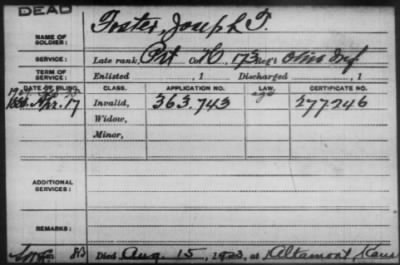 DEAD
NAME OF SOLDIER: Foster, Joseph T.
SERVICE: Late rank, Pvt Co. H, 173 Reg't Ohio Inf
TERM OF SERVICE: Enlisted , 1 Discharged , 1
DATE OF FILING. CLASS. APPLICATION NO. LAW. CERTIFICATE NO.
Apr. 17 Invalid, 363.743 277246
Widow,
Minor,
ADDITIONAL SERVICES:
REMARKS:
Died Aug 15, 1923, at Altamont Kans